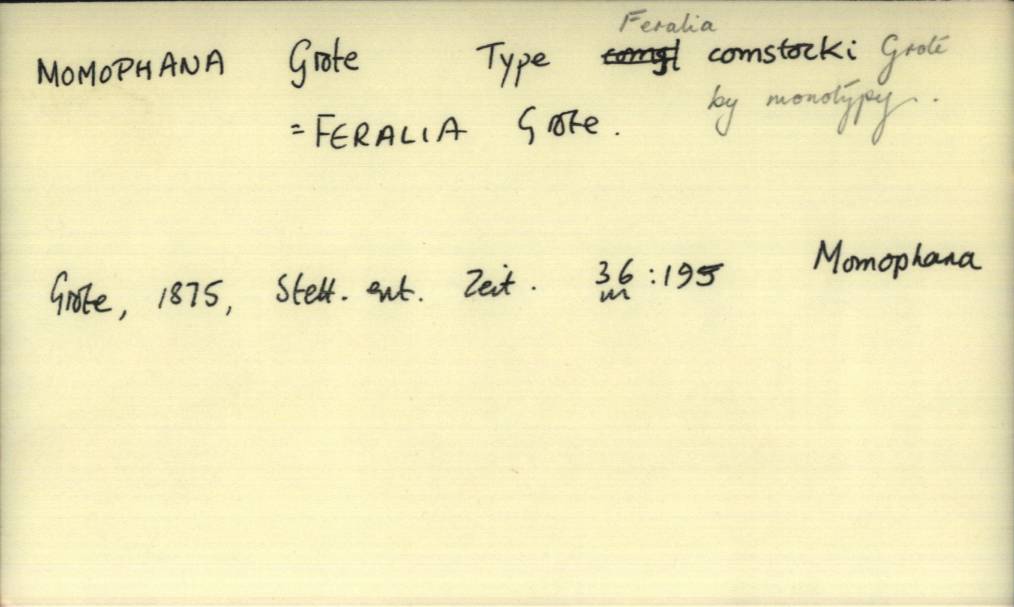 Feralia
MOMOPHANA Grote Type comstocki Grote
by monotypy.
=FERALIA Grote.
Momophana
Grote, 1875, Stett. ent. Zeit. 36:195